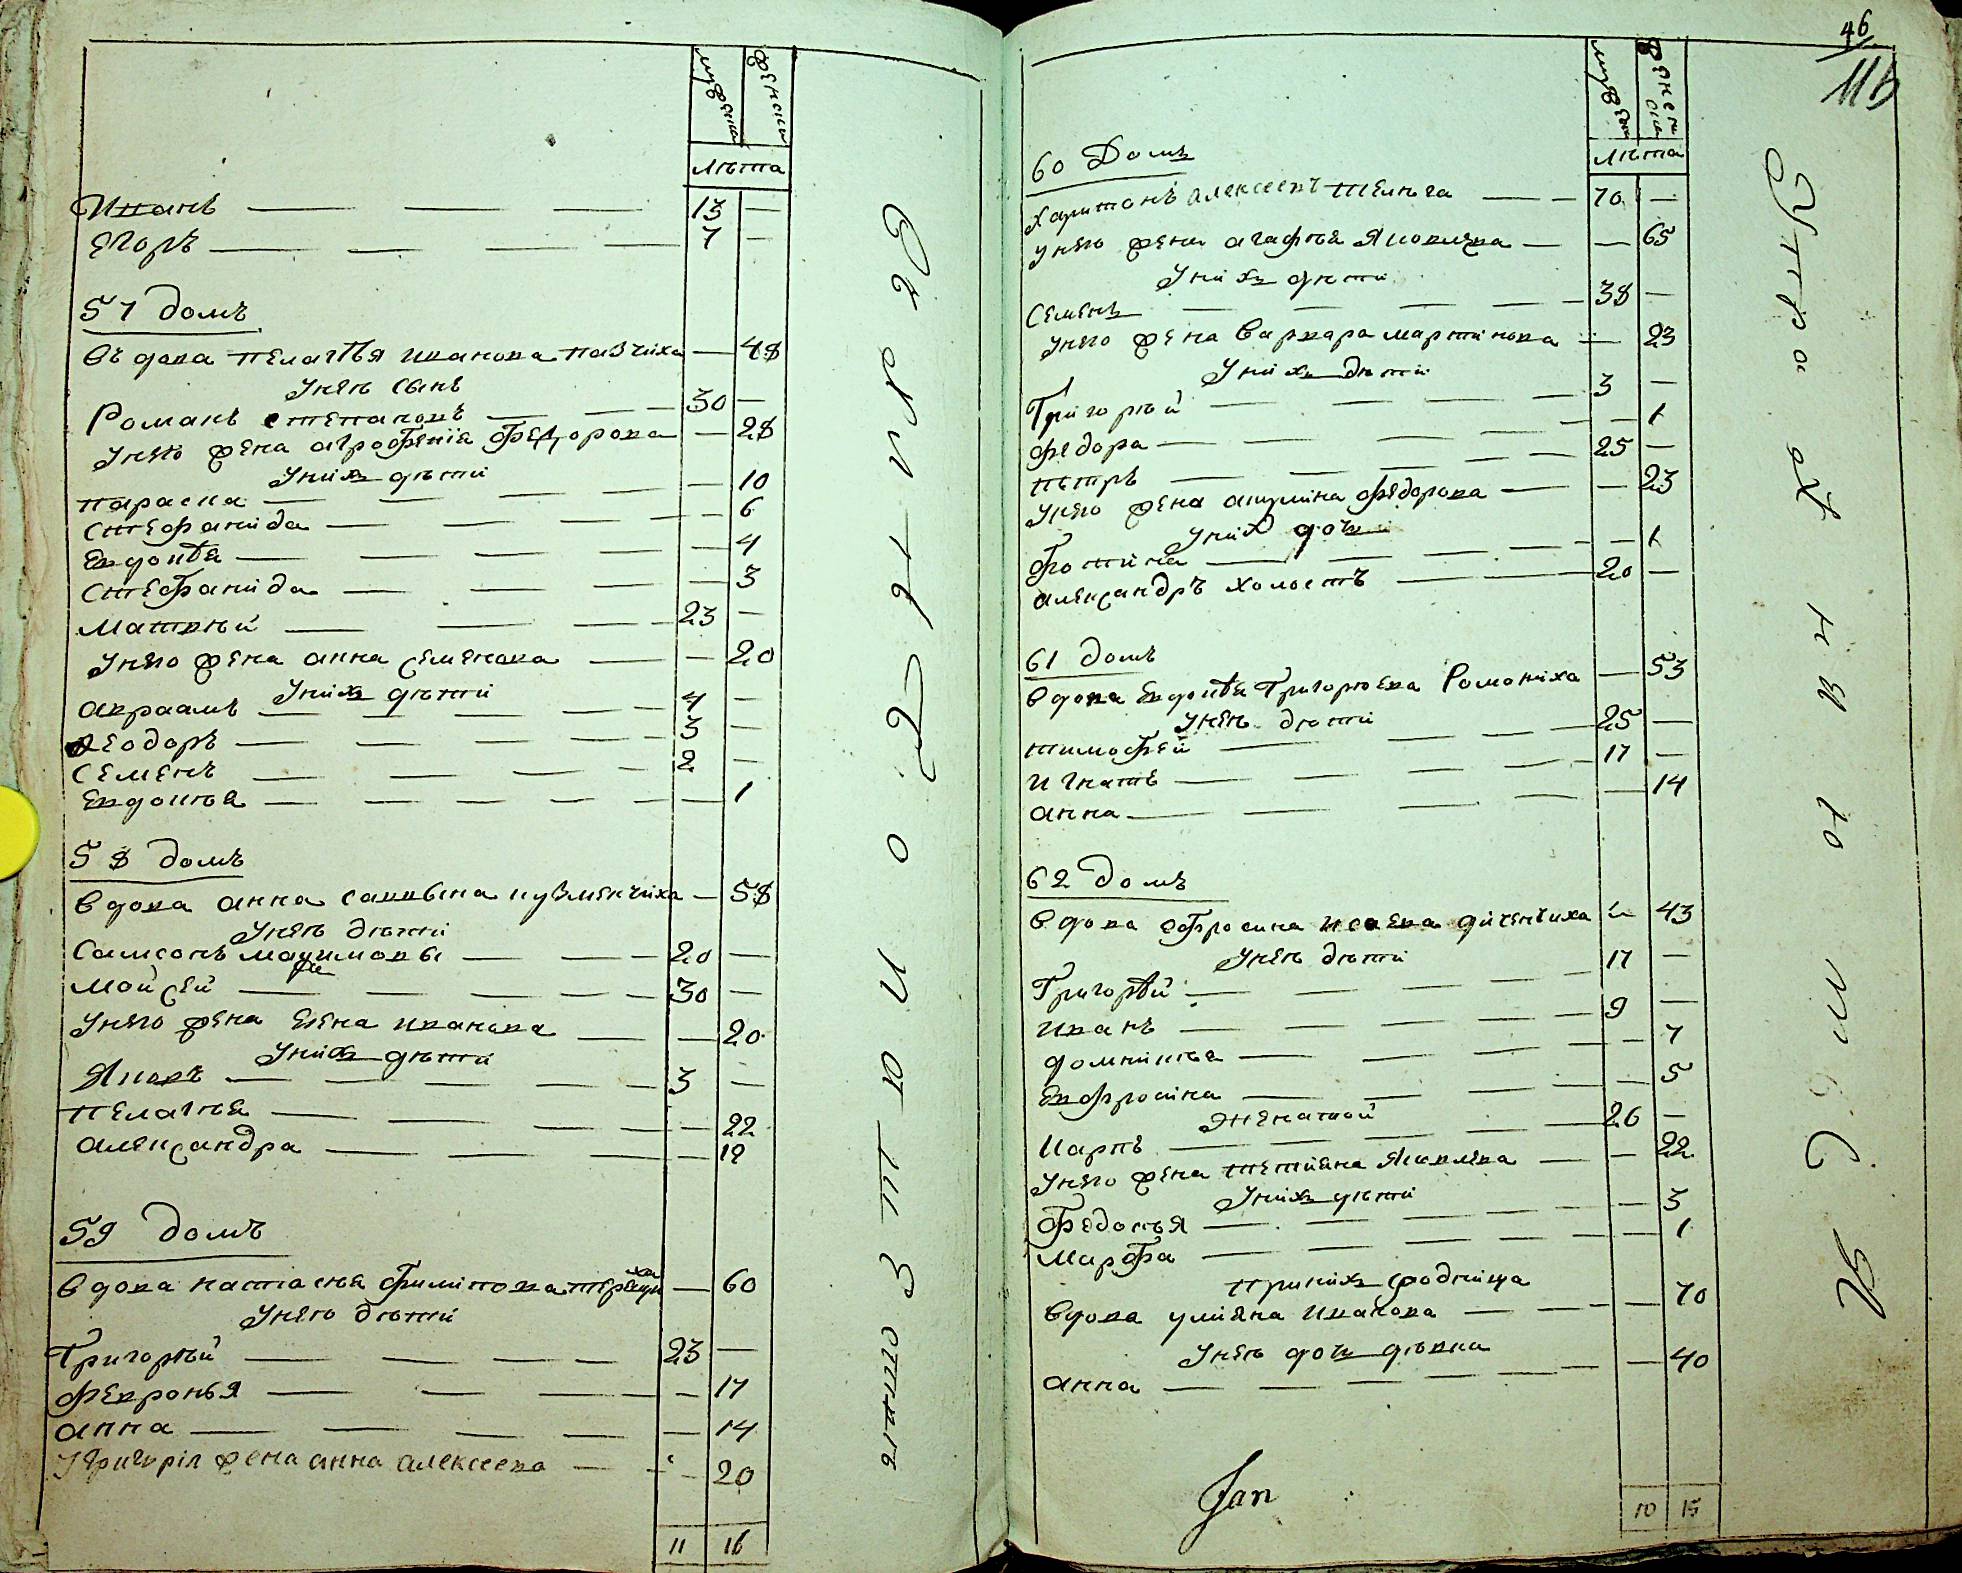 мужска женска
лѣта
Иванъ 13 —
Егоръ 7 —
57 домъ
Въдова Пелагѣя Иванова Павчиха — 48
У неѣ сынъ
Романъ Степановъ 30 —
У него жена Агрофенiя Федорова — 28
У нихъ дѣти
Параска — 10
Стефанида — 6
Евдокѣя — 4
Стефанида — 3
Матвѣй 23 —
У него жена Анна Семенова — 20
У нихъ дѣти
Авраамъ 4 —
Ѳеодоръ 3 —
Семенъ 2 —
Евдокѣя — 1
58 домъ
Вдова Анна Саввына Кузменчиха — 58
У неѣ дѣти
Самсонъ Мацимовы 20 —
Мойсей 30 —
У него жена Елена Иванова — 20
У нихъ дѣти
Яковъ 3 —
Пелагѣя — 22
Александра — 12
59 домъ
Вдова Настасѣя Филипова — 60
У нею дѣти
Григорѣй 23 —
Февронья — 17
Анна — 14
У Григорiя жена Анна Алексеева — 20
11 16
46
60 Домъ
мужска женска
лѣта
Харитонъ Алексеевъ Телѣга 70 —
У него жена Агафѣя Яковлева — 65
У нихъ дѣти
Семенъ 38 —
У него жена Варвара Мартинова — 23
У нихъ дѣти
Григорѣй 3 —
Федора — 1
Петръ 25 —
У него жена Акулина Федорова — 23
У нихъ дочь
Фотина — 1
Александръ холостъ 20 —
61 домъ
Вдова Евдокѣя Григорюева Романиха — 53
У неѣ дѣти
Тимофей 25 —
Игнатъ 17 —
Анна — 14
62 домъ
Вдова Ефросина Исаева Дяченчиха — 43
У неѣ дѣти
Григорѣй 17 —
Иванъ 9 —
Домникѣя — 7
Евфросина — 5
Женатой
Карпъ 26 —
У него жена Тетияна Яковлева — 22
У нихъ дѣти
Федосья — 3
Марфа — 1
При нихъ сродница
Вдова Улияна Иванова — 70
У неѣ дочь дѣвка
Анна — 40
10 15